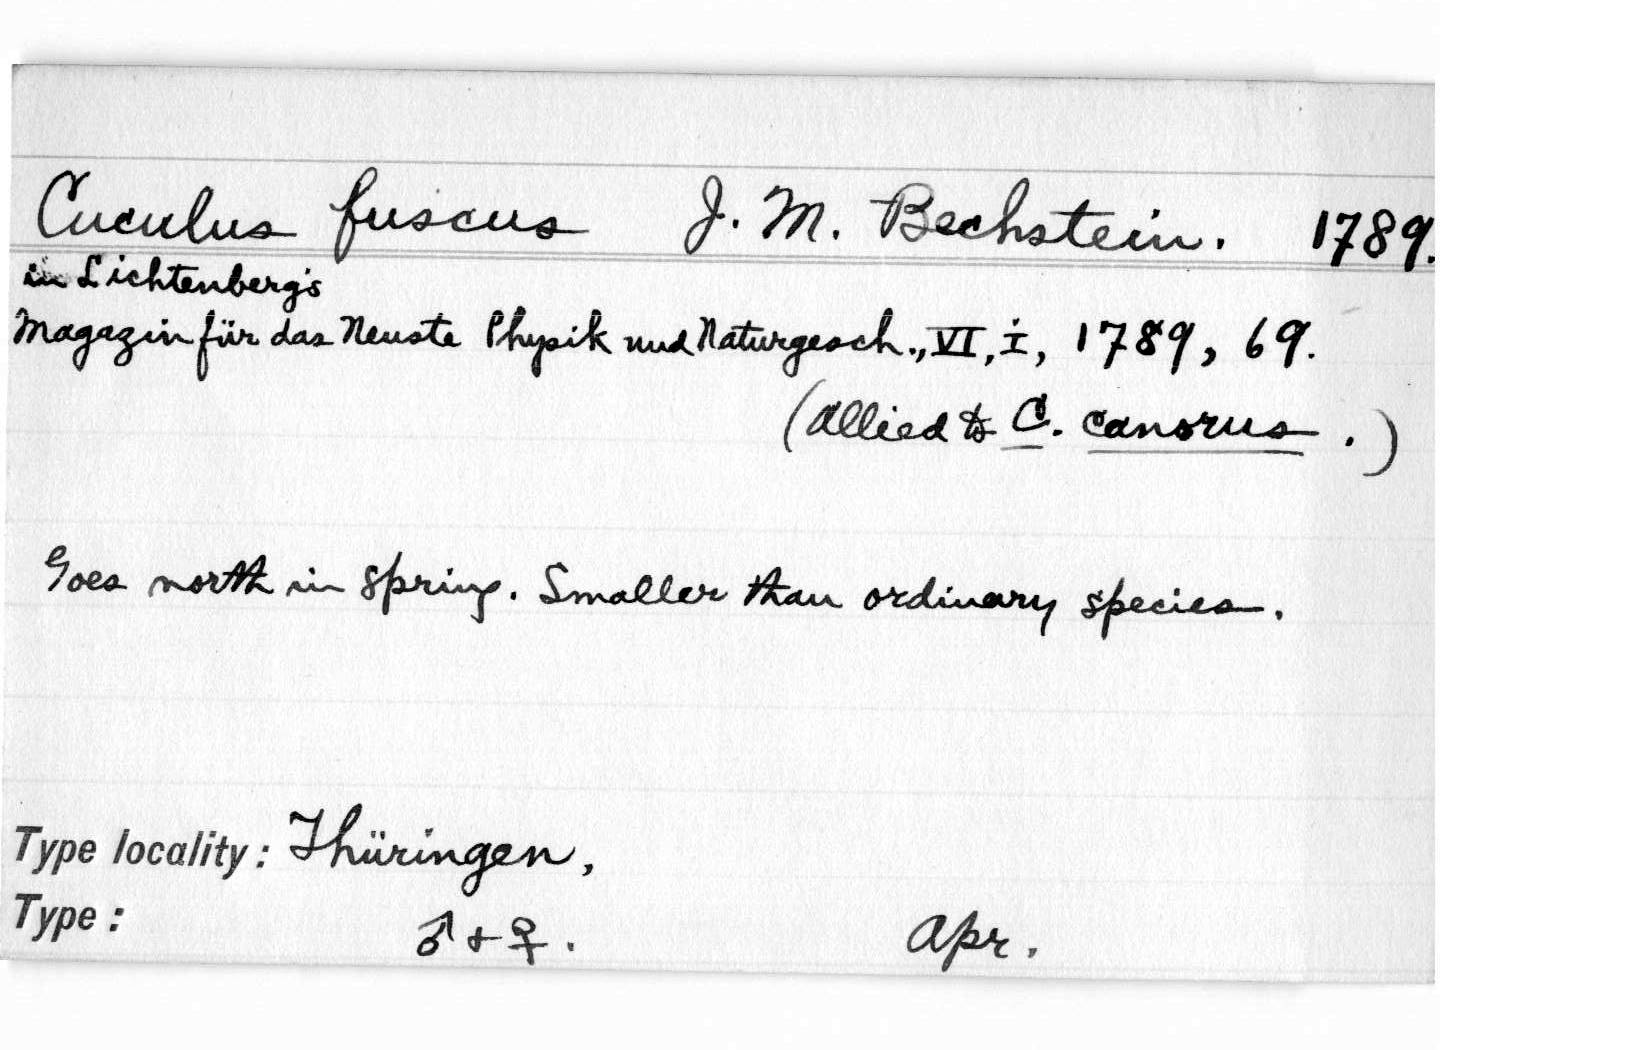 Cuculus fuscus J. M. Bechstein. 1789.
in Lichtenberg's
Magazin für das Neuste Physik und Naturgesch., VI, i, 1789, 69.
(Allied to C. canorus.)
Goes north in Spring. Smaller than ordinary species.
Type locality: Thüringen,
Type:
♂ + ♀. Apr.